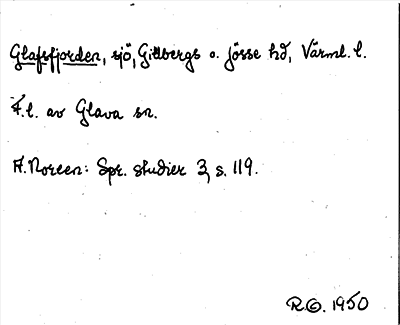 Glafsfjorden, sjö, Gillbergs o. Jösse hd, Värml. l.
F.l. av Glava sn.
A. Noreen: Spr. studier 3, s. 119.
R.G. 1950